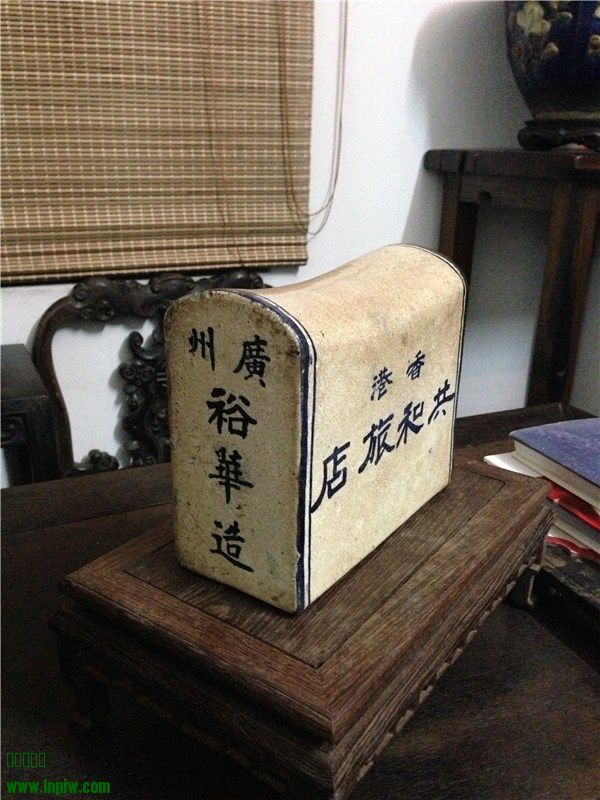 廣州
裕華造
香港
共和旅店
www.lnpiw.com